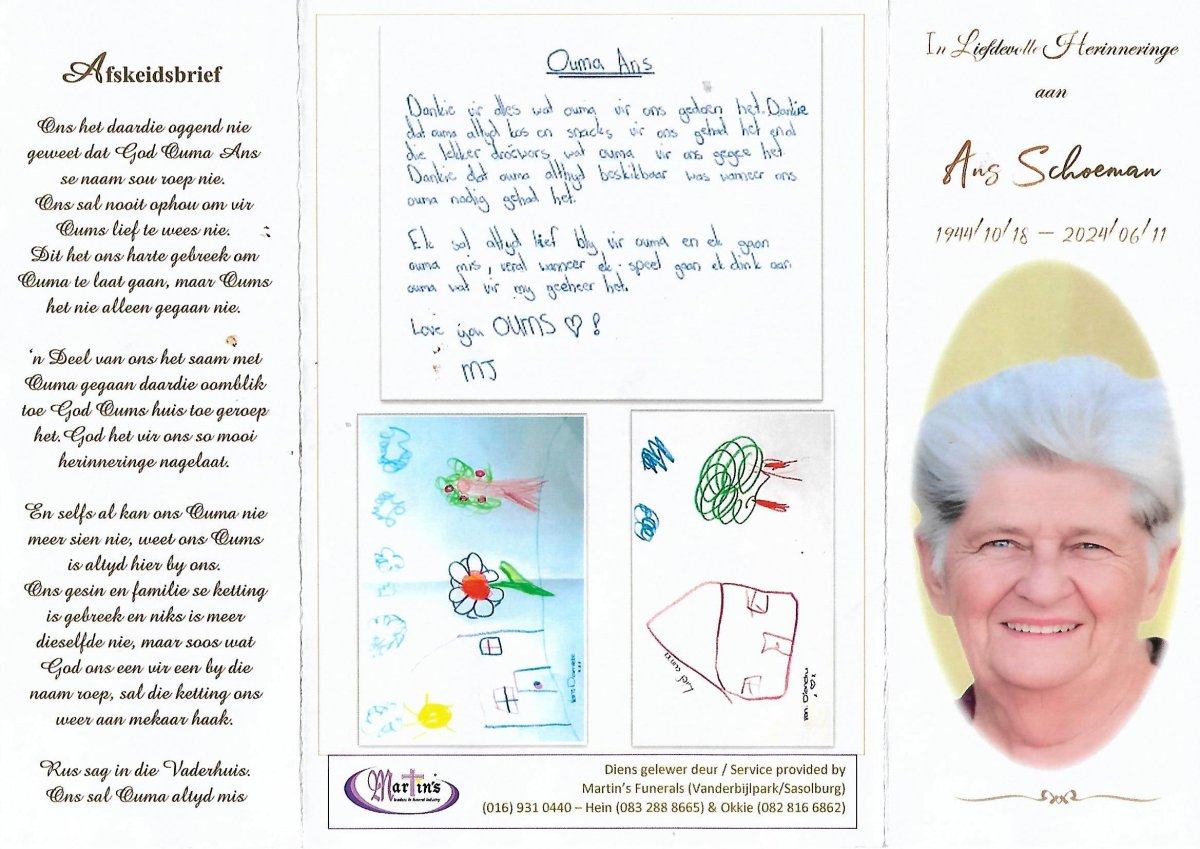 Afskeidsbrief
Ons het daardie oggend nie
geweet dat God Ouma Ans
se naam sou roep nie.
Ons sal nooit ophou om vir
Oums lief te wees nie.
Dit het ons harte gebreek om
Ouma te laat gaan, maar Oums
het nie alleen gegaan nie.
'n Deel van ons het saam met
Ouma gegaan daardie oomblik
toe God Oums huis toe geroep
het. God het vir ons so mooi
herinneringe nagelaat.
En selfs al kan ons Ouma nie
meer sien nie, weet ons Oums
is altyd hier by ons.
Ons gesin en familie se ketting
is gebreek en niks is meer
dieselfde nie, maar soos wat
God ons een vir een by die
naam roep, sal die ketting ons
weer aan mekaar haak.
Rus sag in die Vaderhuis.
Ons sal Ouma altyd mis
Ouma Ans
Dankie vir alles wat ouma vir ons gedoen het. Dankie
dat ouma altyd kos en snacks vir ons gehad het en al
die lekker droëwors wat ouma vir ons gegee het.
Dankie dat ouma althyd beskikbaar was wanneer ons
ouma nodig gehad het.
Ek sal altyd lief bly vir ouma en ek gaan
ouma mis, veral wanneer ek speel gaan ek dink aan
ouma wat vir my geleer het.
Love you OUMS ♡ !
MJ
Diens gelewer deur / Service provided by
Martin's Funerals (Vanderbijlpark/Sasolburg)
(016) 931 0440 – Hein (083 288 8665) & Okkie (082 816 6862)
Martin's
leaders in funeral industry
In Liefdevolle Herinneringe
aan
Ans Schoeman
1944/10/18 – 2024/06/11